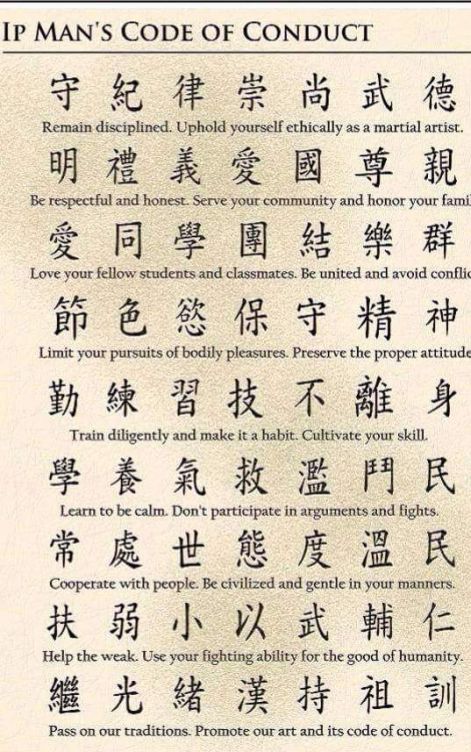 IP MAN'S CODE OF CONDUCT
守紀律崇尚武德
Remain disciplined. Uphold yourself ethically as a martial artist.
明禮義愛國尊親
Be respectful and honest. Serve your community and honor your fami
愛同學團結樂群
Love your fellow students and classmates. Be united and avoid conflic
節色慾保守精神
Limit your pursuits of bodily pleasures. Preserve the proper attitude
勤練習技不離身
Train diligently and make it a habit. Cultivate your skill.
學養氣救濫鬥民
Learn to be calm. Don't participate in arguments and fights.
常處世態度溫民
Cooperate with people. Be civilized and gentle in your manners.
扶弱小以武輔仁
Help the weak. Use your fighting ability for the good of humanity.
繼光緒漢持祖訓
Pass on our traditions. Promote our art and its code of conduct.